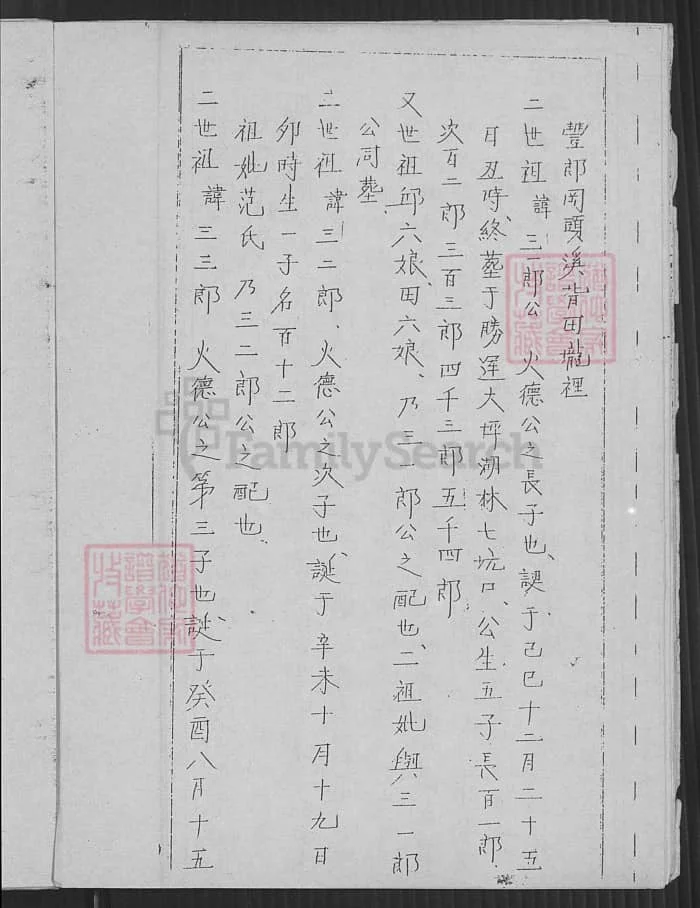 豐郎岡頭溪背田壠裡
二世祖諱三一郎公 火德公之長子也、誕于己巳十二月二十五
日丑時、終葬于勝運大坪湖林七坑口、公生五子長百一郎、
次百二郎三百三郎四千三郎五千四郎
又世祖邱六娘、田六娘、乃三一郎公之配也、二祖妣與三一郎
公同葬
二世祖諱三二郎、火德公之次子也、誕于辛未十月十九日
卯時生一子名百十二郎
祖妣范氏 乃三二郎公之配也
二世祖諱三三郎 火德公之第三子也、誕于癸酉八月十五
FamilySearch